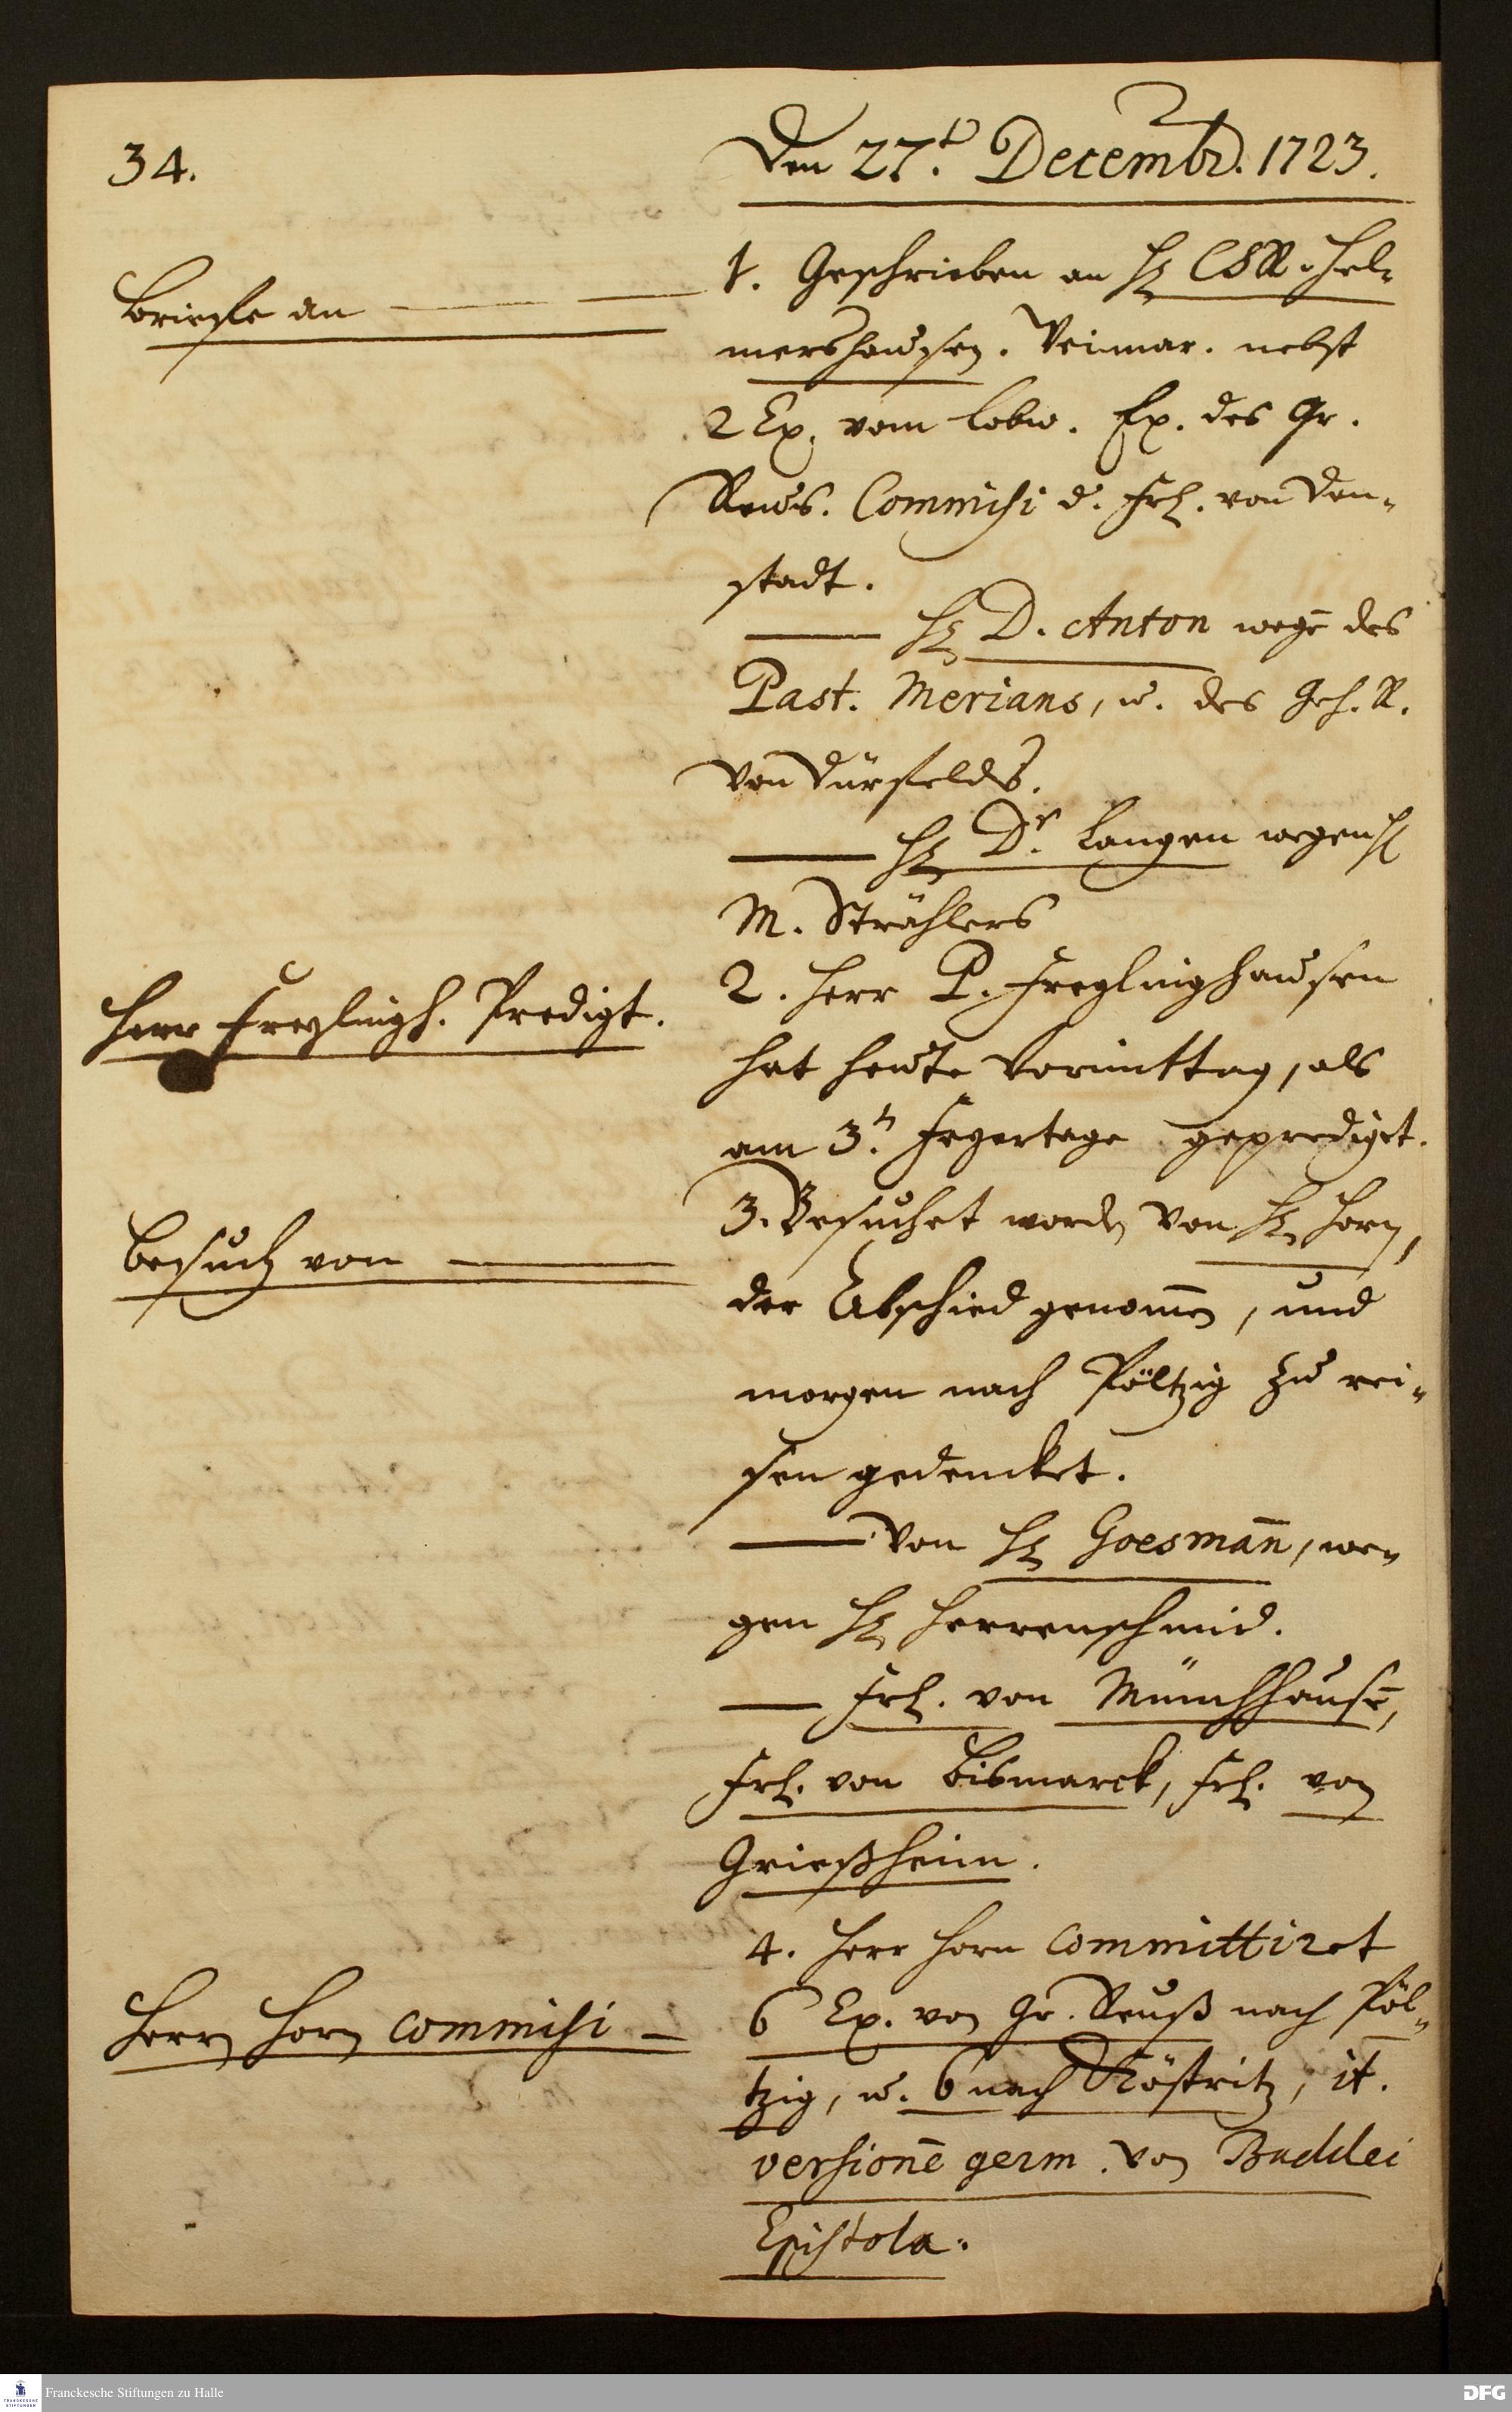 34.
Den 27.t Decembr. 1723.
Briefe an
1. Geschrieben an H. CSR. Hel-
mershausen. Veimar. nebst
2 Ex. vom lebw. Ex. des Gr.
Reuß. Commisi d. Frl. von Den-
stadt.
H. D. Anton wegē des
Past. Merians, u. des Geh. R.
von Dürfelds.
H. Dr. Langen wegen H
M. Strählers
Herr Freylingh. Predigt.
2. Herr P. Freylinghausen
hat heute Vormittag, als
am 3.n Feyertage geprediget.
Besuch von
3. Besuchet worden von H. Horn,
der Abschied genom̄en, und
morgen nach Pöltzig zu rei-
sen gedencket.
Von H. Goesman̄, we-
gen H. Herrenschmid.
Frl. von Münchhausē,
Frl. von Bismarck, Frl. von
Grießheim.
Herrn Horn commisi
4. Herr Horn committiret
6 Ex. von Gr. Reuß nach Pöl-
tzig, u. 6 nach Köstritz, it.
versionē germ. von Buddei
Epistola.
Franckesche Stiftungen zu Halle
DFG